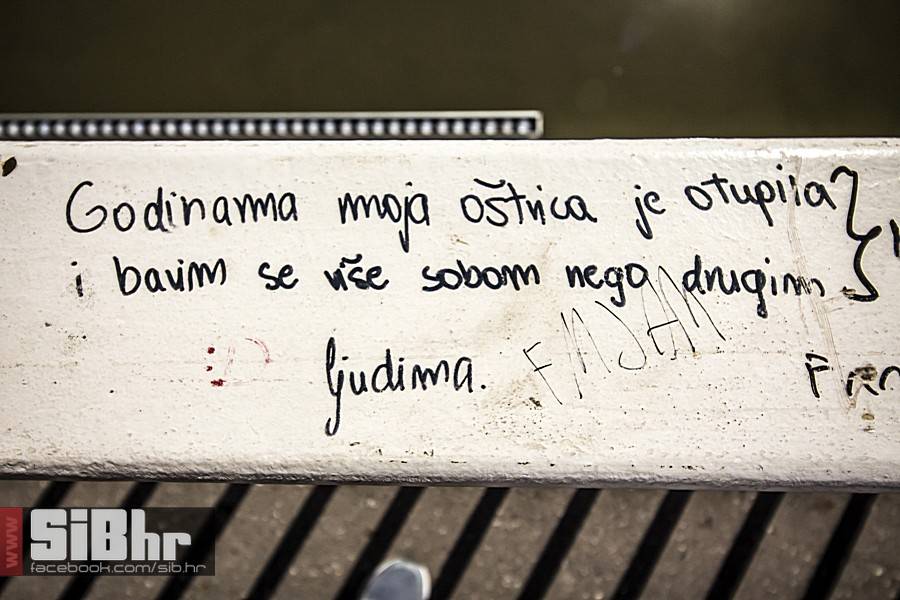 Godinama moja oštrica je otupila
i bavim se više sobom nego drugim
ljudima.
FMJAM
www SiBhr
facebook.com/sib.hr